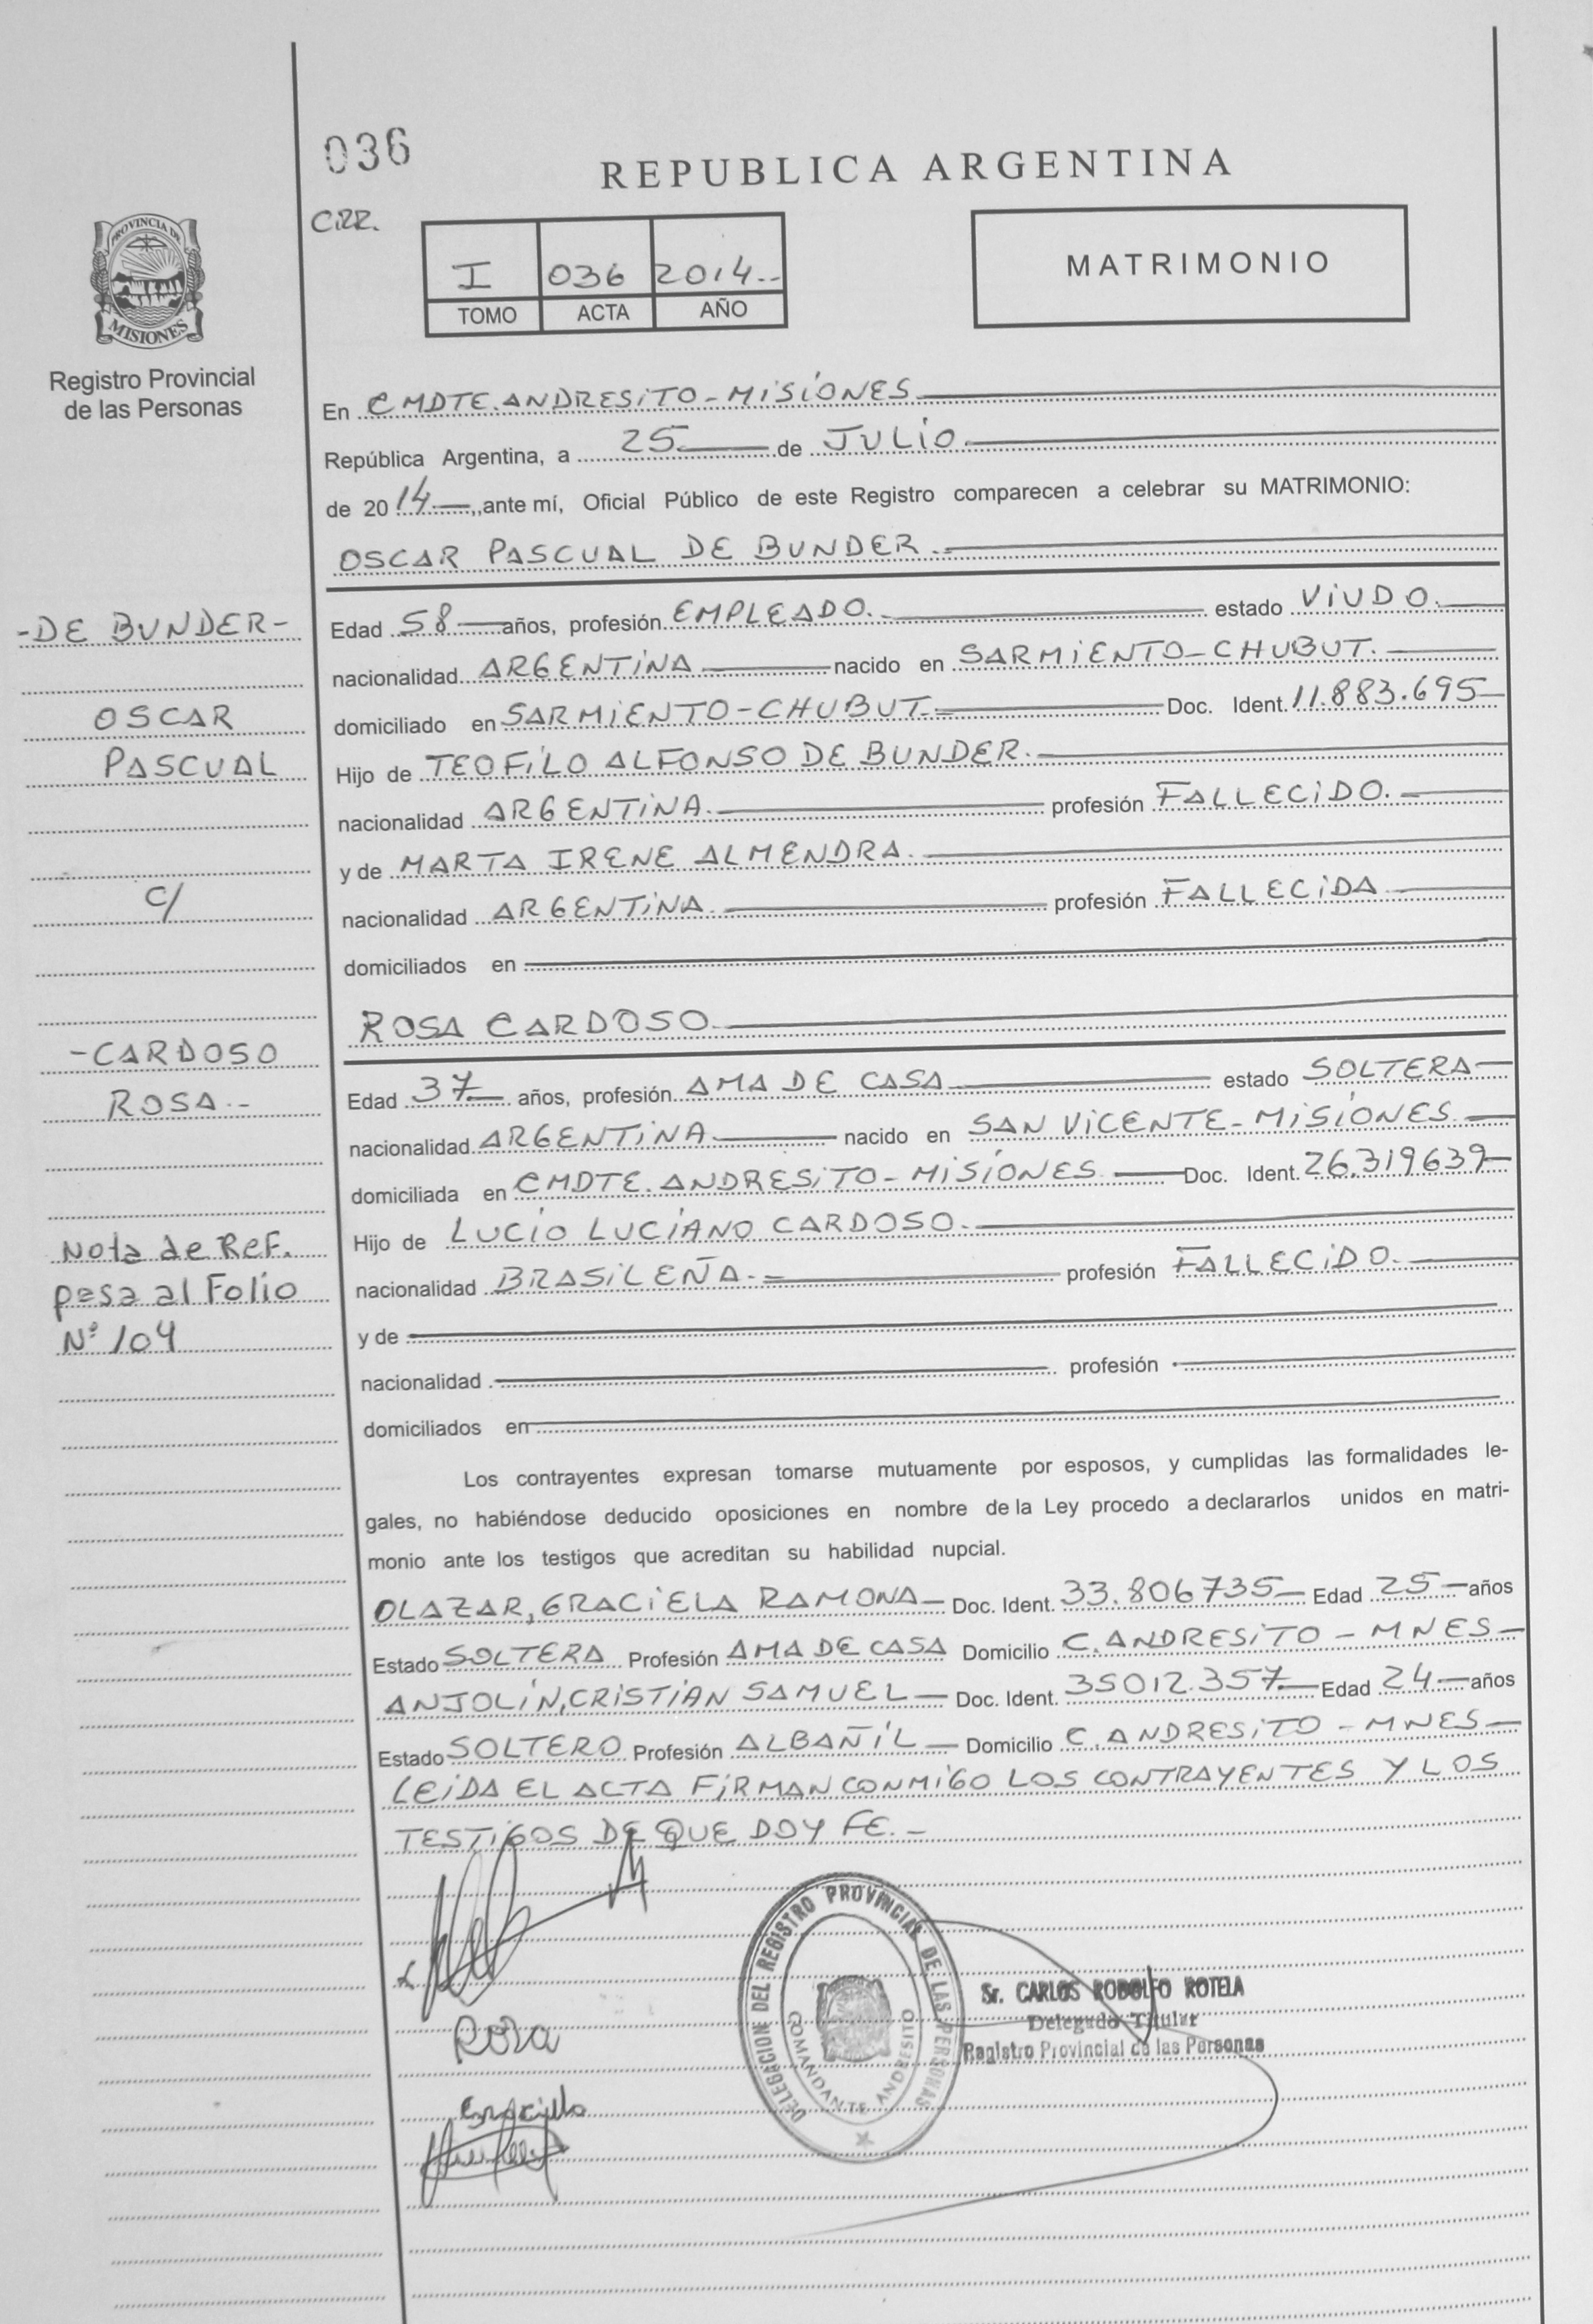 036
REPUBLICA ARGENTINA
CIRR.
PROVINCIA DE
MISIONES
Registro Provincial
de las Personas
I 036 2014.-
TOMO ACTA AÑO
MATRIMONIO
En CMDTE. ANDRESITO - MISIONES
República Argentina, a 25 de JULIO
de 2014, ante mí, Oficial Público de este Registro comparecen a celebrar su MATRIMONIO:
OSCAR PASCUAL DE BUNDER.
-DE BUNDER-
OSCAR
PASCUAL
C/
-CARDOSO
ROSA.-
Nota de Ref.
pasa al Folio
N° 104
Edad 58 años, profesión EMPLEADO. estado VIUDO.
nacionalidad ARGENTINA nacido en SARMIENTO-CHUBUT.
domiciliado en SARMIENTO-CHUBUT. Doc. Ident. 11.883.695
Hijo de TEOFILO ALFONSO DE BUNDER.
nacionalidad ARGENTINA. profesión FALLECIDO.
y de MARTA IRENE ALMENDRA.
nacionalidad ARGENTINA. profesión FALLECIDA
domiciliados en
ROSA CARDOSO
Edad 37 años, profesión AMA DE CASA estado SOLTERA
nacionalidad ARGENTINA nacido en SAN VICENTE-MISIONES
domiciliada en CMDTE. ANDRESITO-MISIONES Doc. Ident. 26.319639
Hijo de LUCIO LUCIANO CARDOSO.
nacionalidad BRASILEÑA. profesión FALLECIDO.
y de
nacionalidad profesión
domiciliados en
Los contrayentes expresan tomarse mutuamente por esposos, y cumplidas las formalidades le-
gales, no habiéndose deducido oposiciones en nombre de la Ley procedo a declararlos unidos en matri-
monio ante los testigos que acreditan su habilidad nupcial.
OLAZAR, GRACIELA RAMONA Doc. Ident. 33.806735 Edad 25 años
Estado SOLTERA Profesión AMA DE CASA Domicilio C. ANDRESITO - MNES
ANJOLIN, CRISTIAN SAMUEL Doc. Ident. 35012.357 Edad 24 años
Estado SOLTERO Profesión ALBAÑIL Domicilio C. ANDRESITO - MNES
LEIDA EL ACTA FIRMAN CONMIGO LOS CONTRAYENTES Y LOS
TESTIGOS DE QUE DOY FE.-
Rosa
DELEGACION DEL REGISTRO PROVINCIAL DE LAS PERSONAS
COMANDANTE ANDRESITO
Sr. CARLOS RODOLFO ROTELA
Delegado Titular
Registro Provincial de las Personas